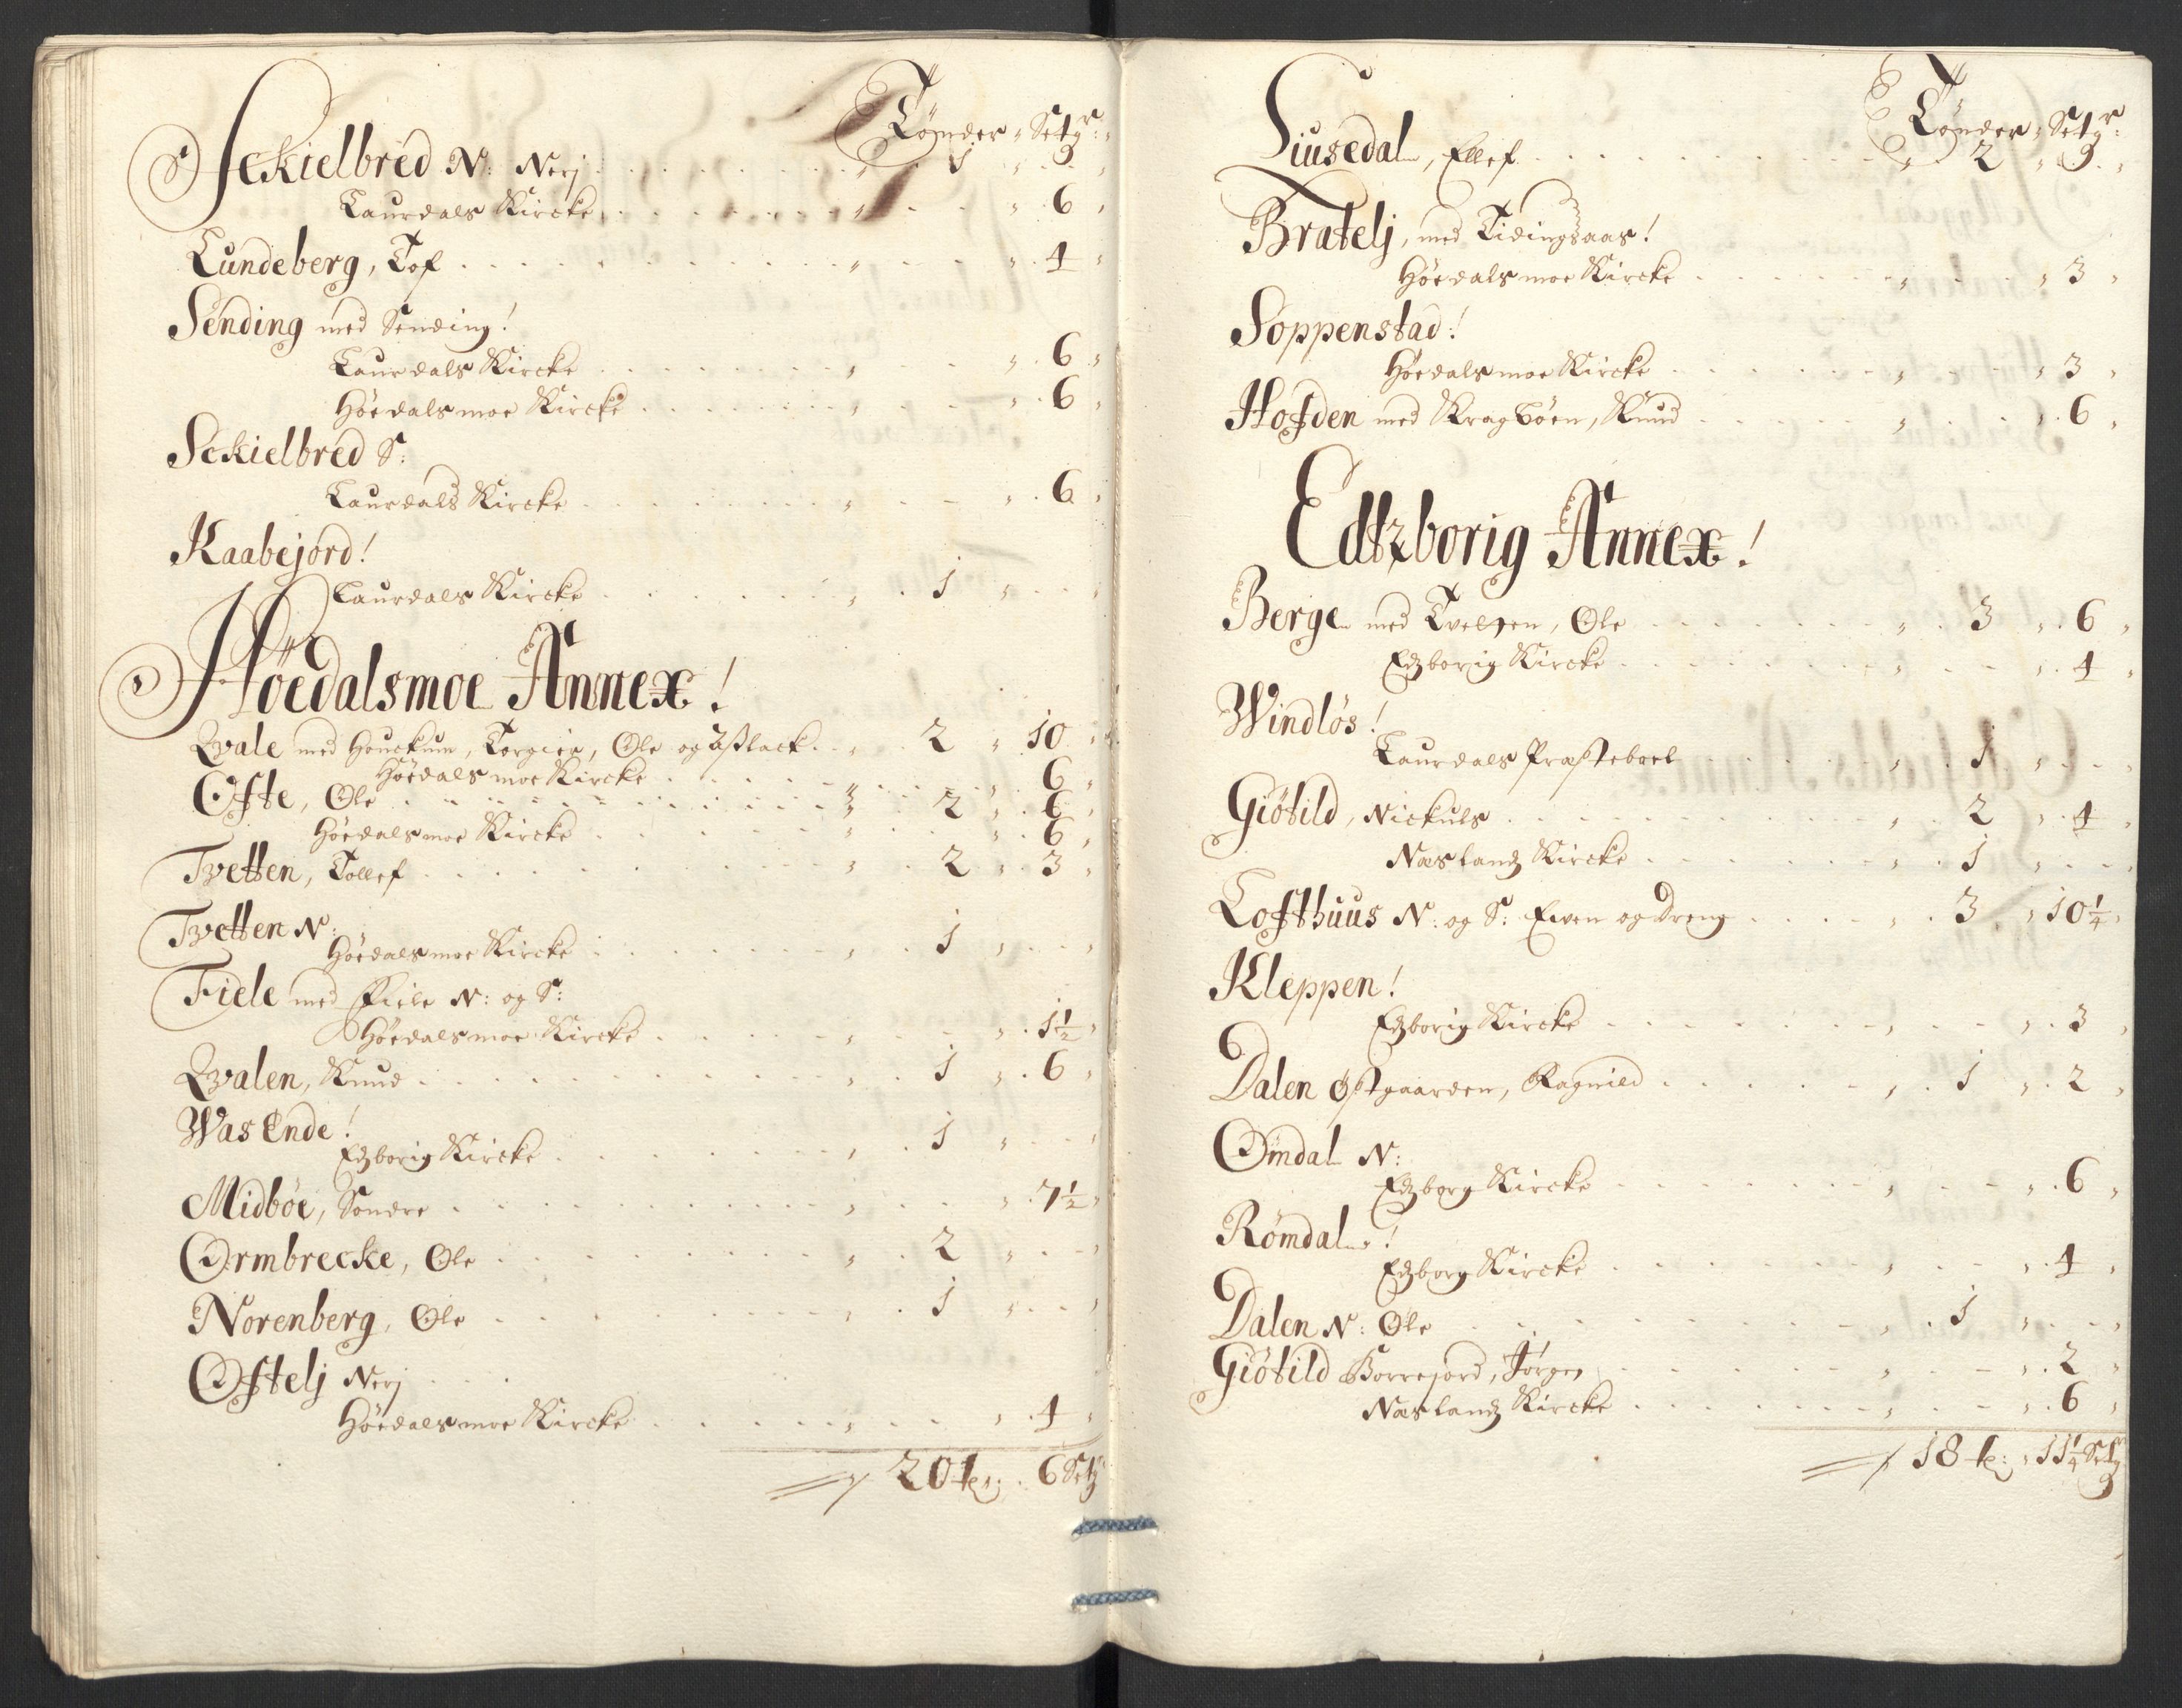 Tønder Setgr:
Sckielbred N: Nerj 1
Laurdals Kircke 6
Lundeberg, Tof 4
Sending med Sending!
Laurdals Kircke 6
Høydalsmoe Kircke 6
Sckielbred S:
Laurdals Kircke 6
Kaabejord!
Laurdals Kircke 1
Höedalsmoe Annex!
Qvale med Houckum, Torgier, Ole og Aslack 2 10
Höedalsmoe Kircke 6
Ofte, Ole 2 6
Höedalsmoe Kircke 6
Tvetten, Tollef 2 3
Tvetten N:
Höedalsmoe Kircke 1
Fiele med Fiele N: og S:
Höedalsmoe Kircke 1½
Qvalen, Knud 1 6
Was Ende!
Edzborig Kircke 1
Midböe, Sondre 7½
Ormbrecke, Ole 2
Norenberg, Ole 1
Oftelj Nerj
Höedalsmoe Kircke 4
20 t: 6 Setg
Tønder Setgr:
Liusedal, Ellef 2 9
Bratelj, med Tidingsaas!
Höedalsmoe Kircke 3
Soppenstad!
Höedalsmoe Kircke 3
Hofden med Kragböen, Knud 6
Edtzborig Annex!
Berge med Tveften, Ole 3 6
Edzborig Kircke 4
Windlös!
Laurdals Præsteboel 1
Giötild, Nickuls 2 4
Næslandz Kircke 1
Lofthuus N: og S: Even og Dreng 3 10¼
Kleppen!
Edzborig Kircke 3
Dalen Østgaarden, Ragnild 1 2
Omdal N:
Edzborg Kircke 6
Römdal!
Edzborg Kircke 4
Dalen N: Ole 1
Giötild Borrejord, Jørgen 2
Næslandz Kircke 6
18 t: 11¼ Setg